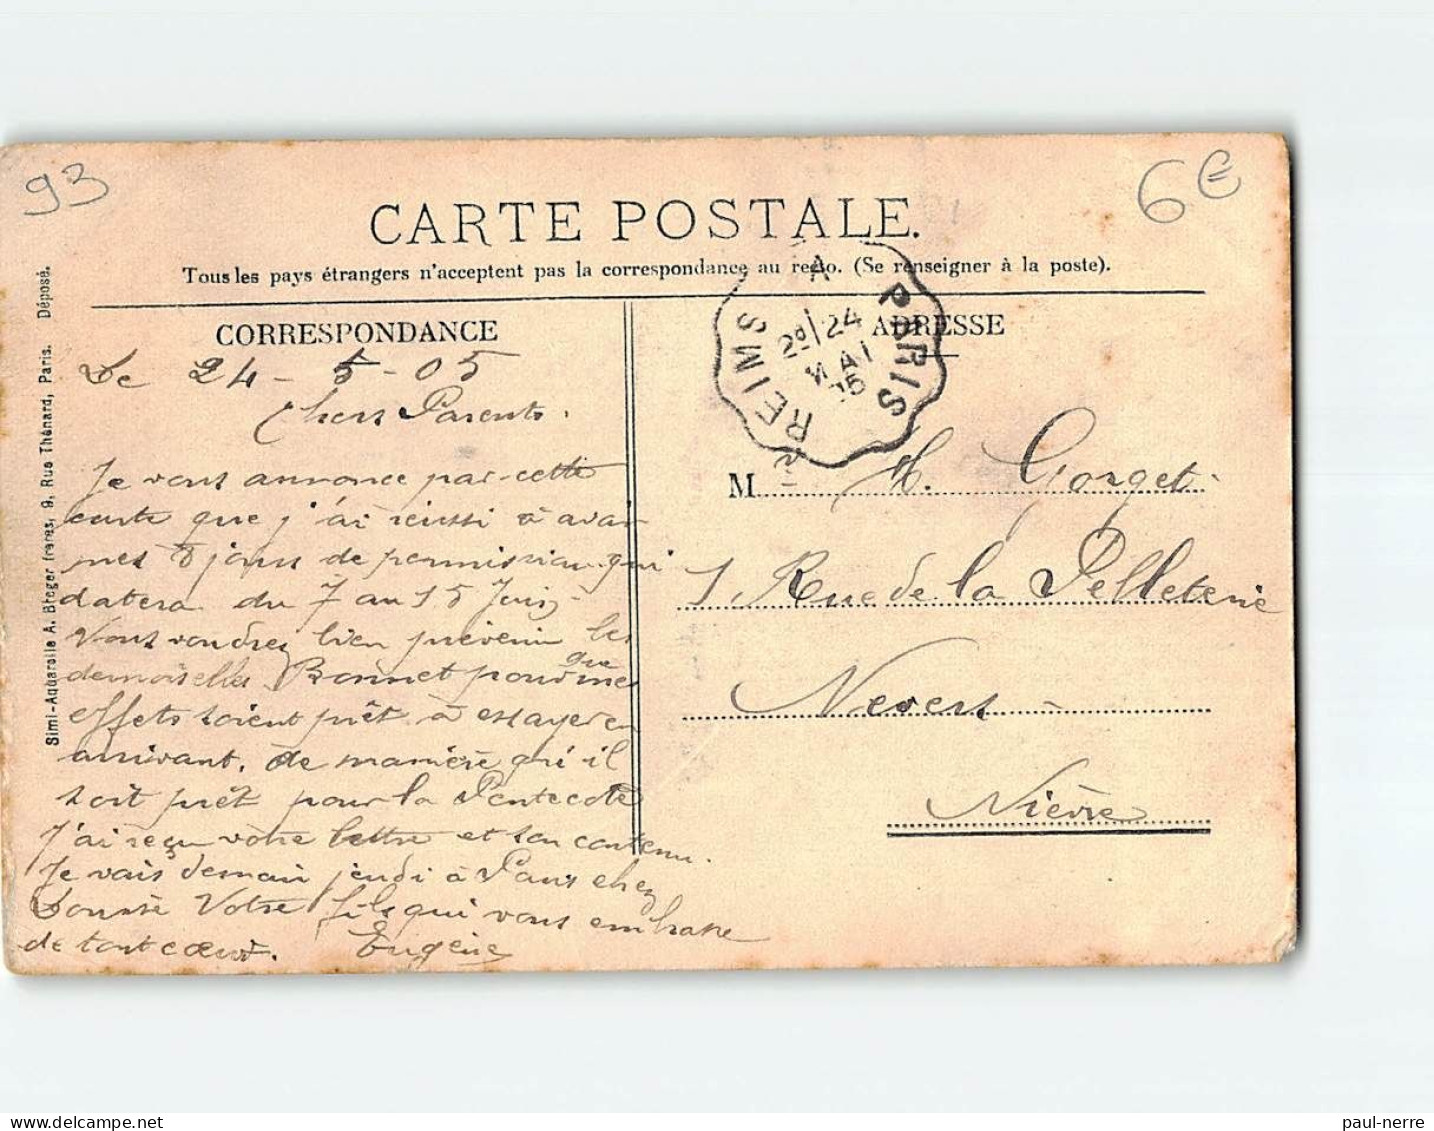 93
6€
CARTE POSTALE.
Tous les pays étrangers n'acceptent pas la correspondance au recto. (Se renseigner à la poste).
CORRESPONDANCE
ADRESSE
REIMS A PARIS
2º 24
MAI
05
Le 24-5-05
Chers Parents.
Je vous annonce par cette
carte que j'ai réussi à avoir
mes 8 jours de permission qui
datera du 7 au 15 Juin.
Vous voudrez bien prévenir les
demoiselles Bonnet pour que mes
effets soient prêt à essayer en
arrivant. de manière qui il
soit prêt pour la Pentecôte
J'ai reçu votre lettre et son contenu.
Je vais demain jeudi à Paris chez
Votre fils qui vous embrasse
de tout cœur. Eugène
M. H. Gorget
1 Rue de la Pelleterie
Nevers
Nièvre
Simi-Aquarelle A. Breger frères, 9, Rue Thénard, Paris. Déposé.
paul-nerre